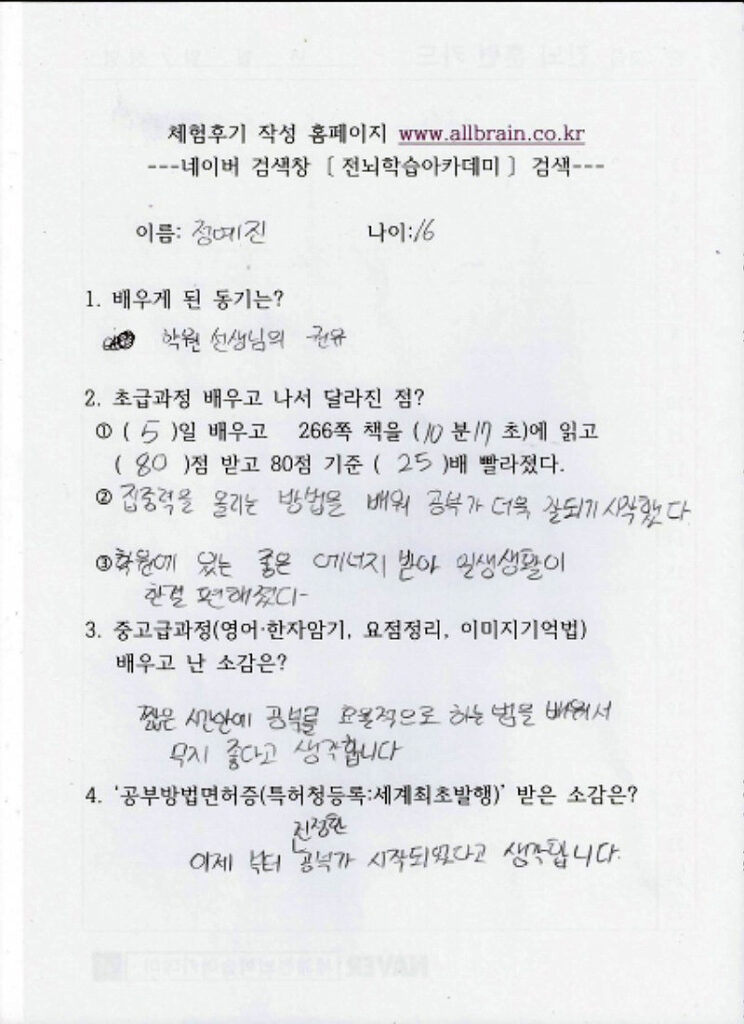 체험후기 작성 홈페이지 www.allbrain.co.kr
---네이버 검색창 [ 전뇌학습아카데미 ] 검색---
이름: 정예진 나이:16
1. 배우게 된 동기는?
학원 선생님의 권유
2. 초급과정 배우고 나서 달라진 점?
① ( 5 )일 배우고 266쪽 책을 (10 분17 초)에 읽고
( 80 )점 받고 80점 기준 ( 25 )배 빨라졌다.
② 집중력을 올리는 방법을 배워 공부가 더욱 잘되기 시작했다
③ 학원에 있는 좋은 에너지 받아 일생생활이
한결 편해졌다-
3. 중고급과정(영어·한자암기, 요점정리, 이미지기억법)
배우고 난 소감은?
짧은 시간안에 공부를 효율적으로 하는 법을 배워서
무지 좋다고 생각합니다
4. '공부방법면허증(특허청등록:세계최초발행)' 받은 소감은?
진정한
이제 부터 공부가 시작되었다고 생각됩니다.